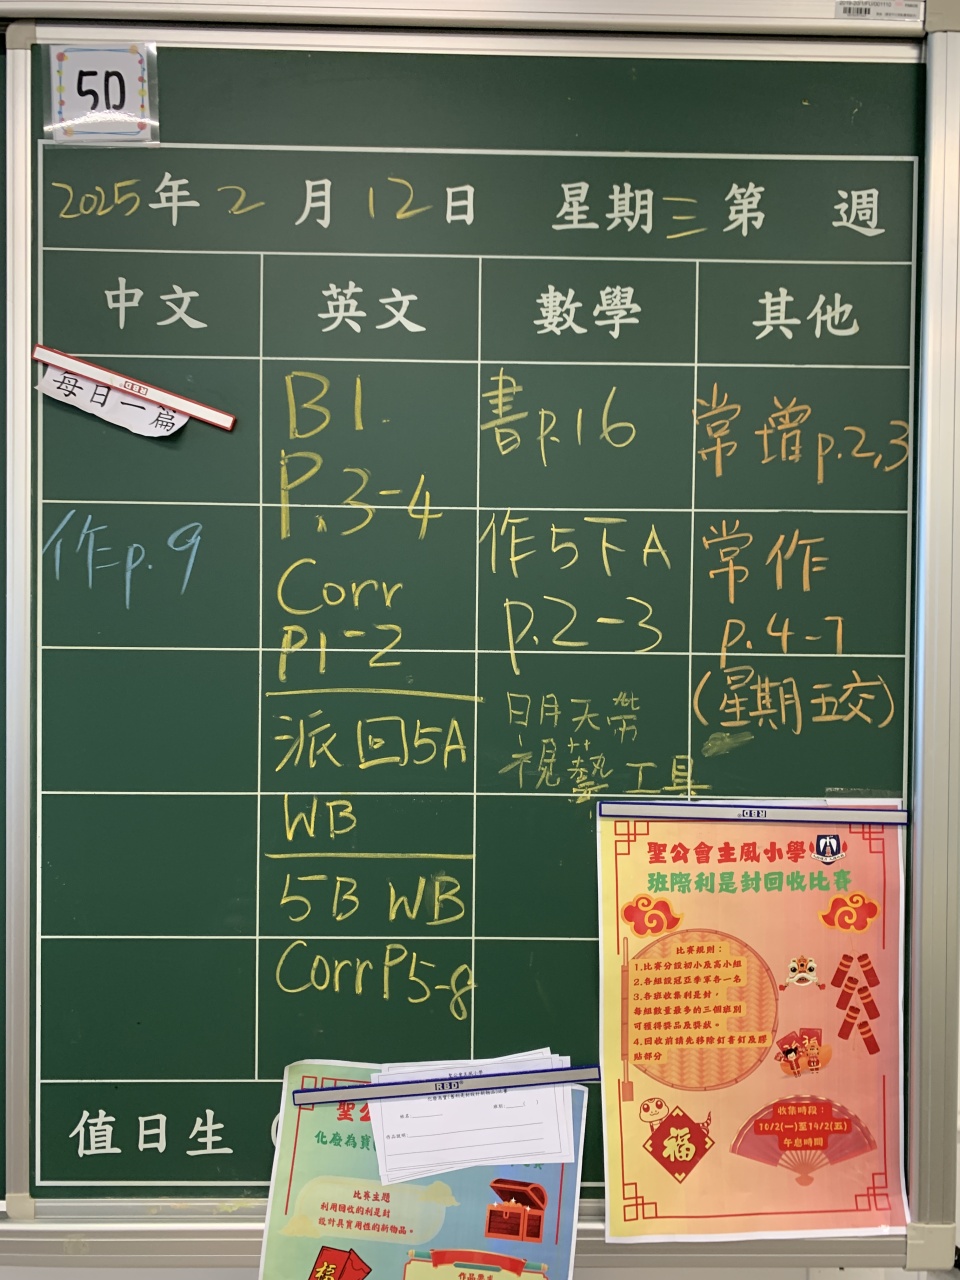 5D
2025年2月12日 星期三第 週
中文 英文 數學 其他
每日一篇
作p.9
B1.
P.3-4
Corr
P1-2
派回5A
WB
5B WB
Corr P5-8
書p.16
作5下A
p.2-3
明天帶
視藝工具
常增p.2,3
常作
p.4-7
(星期五交)
值日生
RBD
聖公會主風小學
班際利是封回收比賽
比賽規則：
1.比賽分設初小及高小組
2.各組設冠亞季軍各一名
3.各班收集利是封，
每組數量最多的三個班別
可獲得獎品及獎狀。
4.回收前請先移除釘書釘及膠
貼部分
福
收集時段：
10/2(一)至14/2(五)
午息時間
RBD
聖公會主風小學
姓名：
班別：
作品說明：
聖公
化廢為寶
比賽主題
利用回收的利是封
設計具實用性的新物品。
福
作品要求